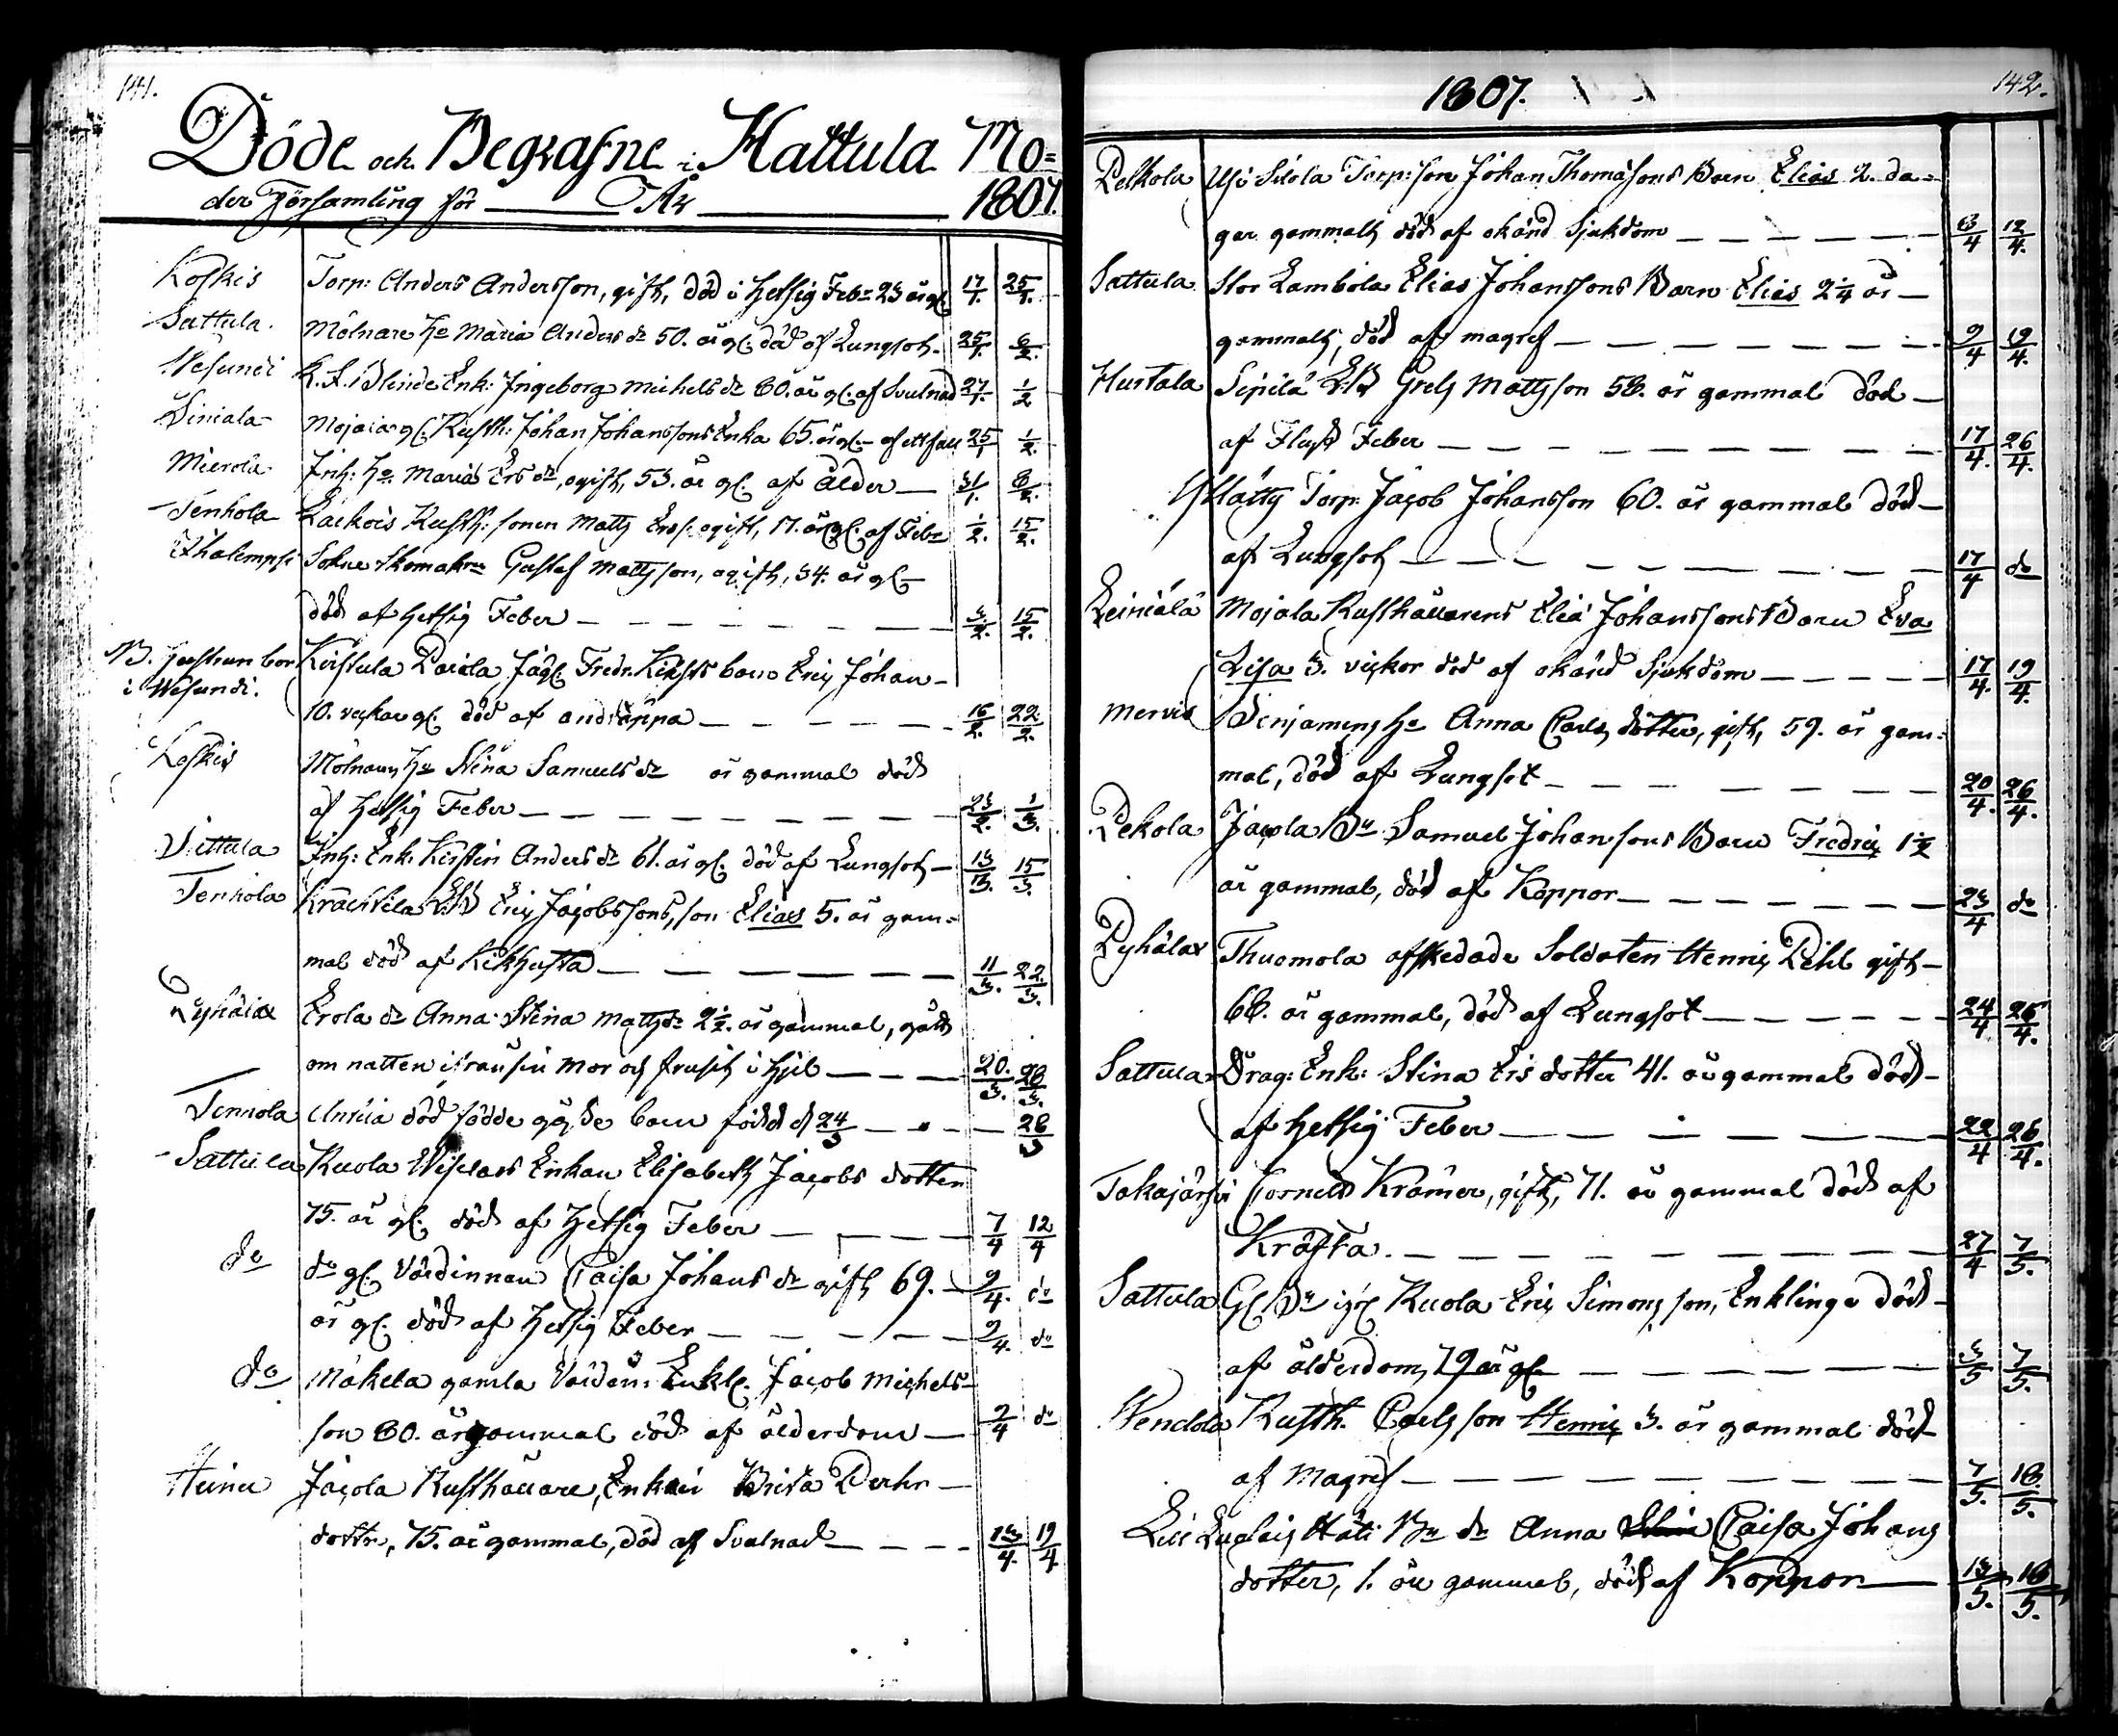 141.
Döde och Begrafne i Hattula Mo=
der Församling för ——— År ——— 1807.
Koskis Torp: Anders Andersson, gift, död i Hetsig Feb:r 23 år gl. 17/1. 25/1.
Sattula. Mölnare H:o Maria Anders d:r 50. år gl. död af Lungsot. 25/1. 6/2.
Wesundi Enk: Ingeborg Michels d:r 60. år gl. af Svulnad 27/1. 1/2
Leiniala Mojala gl. Rusth: Johan Johanssons Enka 65. år gl. 25/1 1/2.
Mierola Inh: H:o Maria Ers d:r, ogift, 53. år gl. af ålder — 31/1. 8/2.
Tenhola Rusth: sonen Matts Ersson ogift, 17. år gl. af Feb:r 1/2. 15/2.
Ihalempi Gustaf Mattsson, ogift, 34. år gl —
död af Hetsig Feber — — — — — 3/2. 15/2.
Fredr. barn Eric Johan —
i Wesundi. 10. veckor gl. död af andtäppa — — — — 16/2. 22/2.
Koskis Mölnarns H:u Stina Samuels d:r år gammal död
af Hetsig Feber — — — — — — 23/2. 1/3.
Vittula Inh: Enk: Kirstin Anders d:r 61. år gl. död af Lungsot — 13/3. 15/3.
Tenhola Eric Jacobssons, son Elias 5. år gam=
mal död af Kikhosta — — — — — 11/3. 22/3.
Pyhälax Erola d:r Anna Stina Matts d:r 2 1/2. år gammal, gådt
om natten ifrån sin mor och frusit i hjel — — — 20./3. 28/3.
Tenhola Anttila död födde gosse barn född d 24/3 — — — 28/3
Sattula Kuola Enkan Elisabeth Jacobs dotter
75. år gl. död af Hetsig Feber — — — — 7/4 12/4
d:o d:o gl. Värdinnan Caisa Johans d:r gift 69. — 9/4. d:o
år gl. död af Hetsig Feber — — — — — 9/4. d:o
d:o Mäkela gamla Värden: Enkl. Jacob Michels—
son 80. år gammal död af ålderdom — 9/4 d:o
Jacola Rusthållare, Enkan Brita —
dotter, 75. år gammal, död af Svulnad — — — — 13/4. 19/4
1807. 142.
Pelkola Torp: son Johan Thomæsons Barn Elias 2. da=
gar gammalt död af okänd Sjukdom — — — — — 3/4 12/4.
Sattula Stor Lambola Elias Johanssons Barn Elias 2 1/4 år —
gammalt, död af magref — — — — — — — 9/4 19/4.
Hurtala Sipilä Grels Mattsson 58. år gammal död —
af Fluss Feber — — — — — — — — 17/4. 26/4.
Torp: Jacob Johansson 60. år gammal död —
af Lungsot — — — — — — — — — 17/4 d:o
Leiniälä Mojala Rusthållarens Elia Johanssons Barn Eva
Lisa 3. vickor död af okänd Sjukdom — — — — — 17/4. 19/4.
Mervis Benjamins H:o Anna Carls dotter, gift, 59. år gam=
mal, död af Lungsot — — — — — — — 20/4. 26/4.
Pekola Jacola B:n Samuel Johanssons Barn Fredric 1 1/2
år gammal, död af Koppor — — — — — — 23/4 d:o
Pyhälax Thuomola afskedade Soldaten Henric Pihl gift —
68. år gammal, död af Lungsot — — — — — 24/4 26/4.
Sattula Drag: Enk: Stina Ers dotter 41. år gammal död —
af Hetsig Feber — — — — — — 22/4 26/4.
Takajärfvi Cornels Krämer, gift, 71. år gammal död af
Kräfta. — — — — — — — — 27/4 7/5.
Sattula Gl. B:n Kuola Eric Simonsson, Enkling död —
af ålderdom, 79 år gl. — — — — — 3/5 7/5.
Rusth. Carls son Henric 3. år gammal död —
af Magref — — — — — — — — 7/5. 18/5.
B:n d:r Anna Caisa Johans
dotter, 1. år gammal, död af Koppor — 13/5. 18/5.